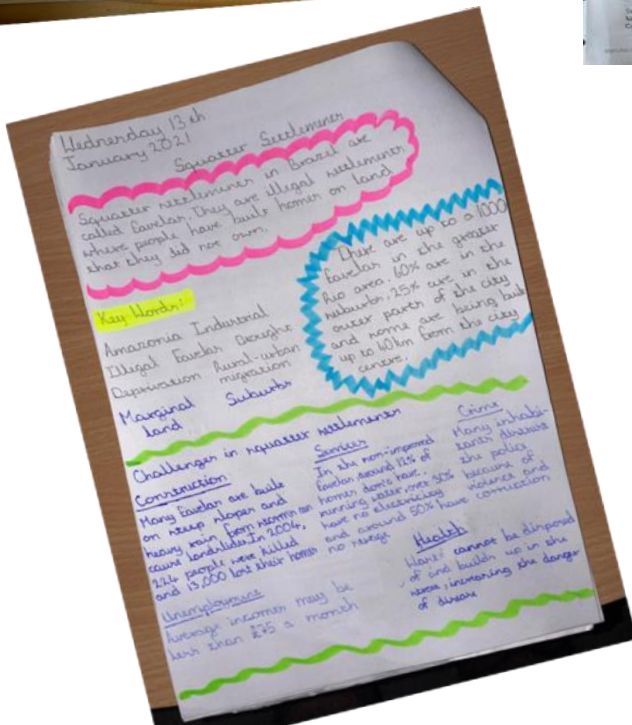 Wednesday 13th
January 2021
Squatter Settlements
Squatter settlements in Brazil are
called favelas. They are illegal settlements
where people have built homes on land
that they did not own.
There are up to a 1000
favelas in the greater
Rio area. 60% are in the
suburbs, 25% are in the
outer parts of the city
and some are being built
up to 40km from the city
centre.
Key Words:
Amazonia Industrial
Illegal Favelas Drought
Deprivation Rural-urban
migration
Marginal Suburbs
land
Challenges in squatter settlements
Construction
Many favelas are built
on steep slopes and
heavy rain from storms can
cause landslides. In 2004,
224 people were killed
and 13,000 lost their homes
Services
In the non-improved
favelas around 12% of
homes don't have
running water, over 30%
have no electricity
and around 50% have
no sewage
Crime
Many inhabi-
tants distrust
the police
because of
violence and
corruption
Unemployment
Average incomes may be
less than £75 a month
Health
Waste cannot be disposed
of and builds up in the
streets, increasing the danger
of disease